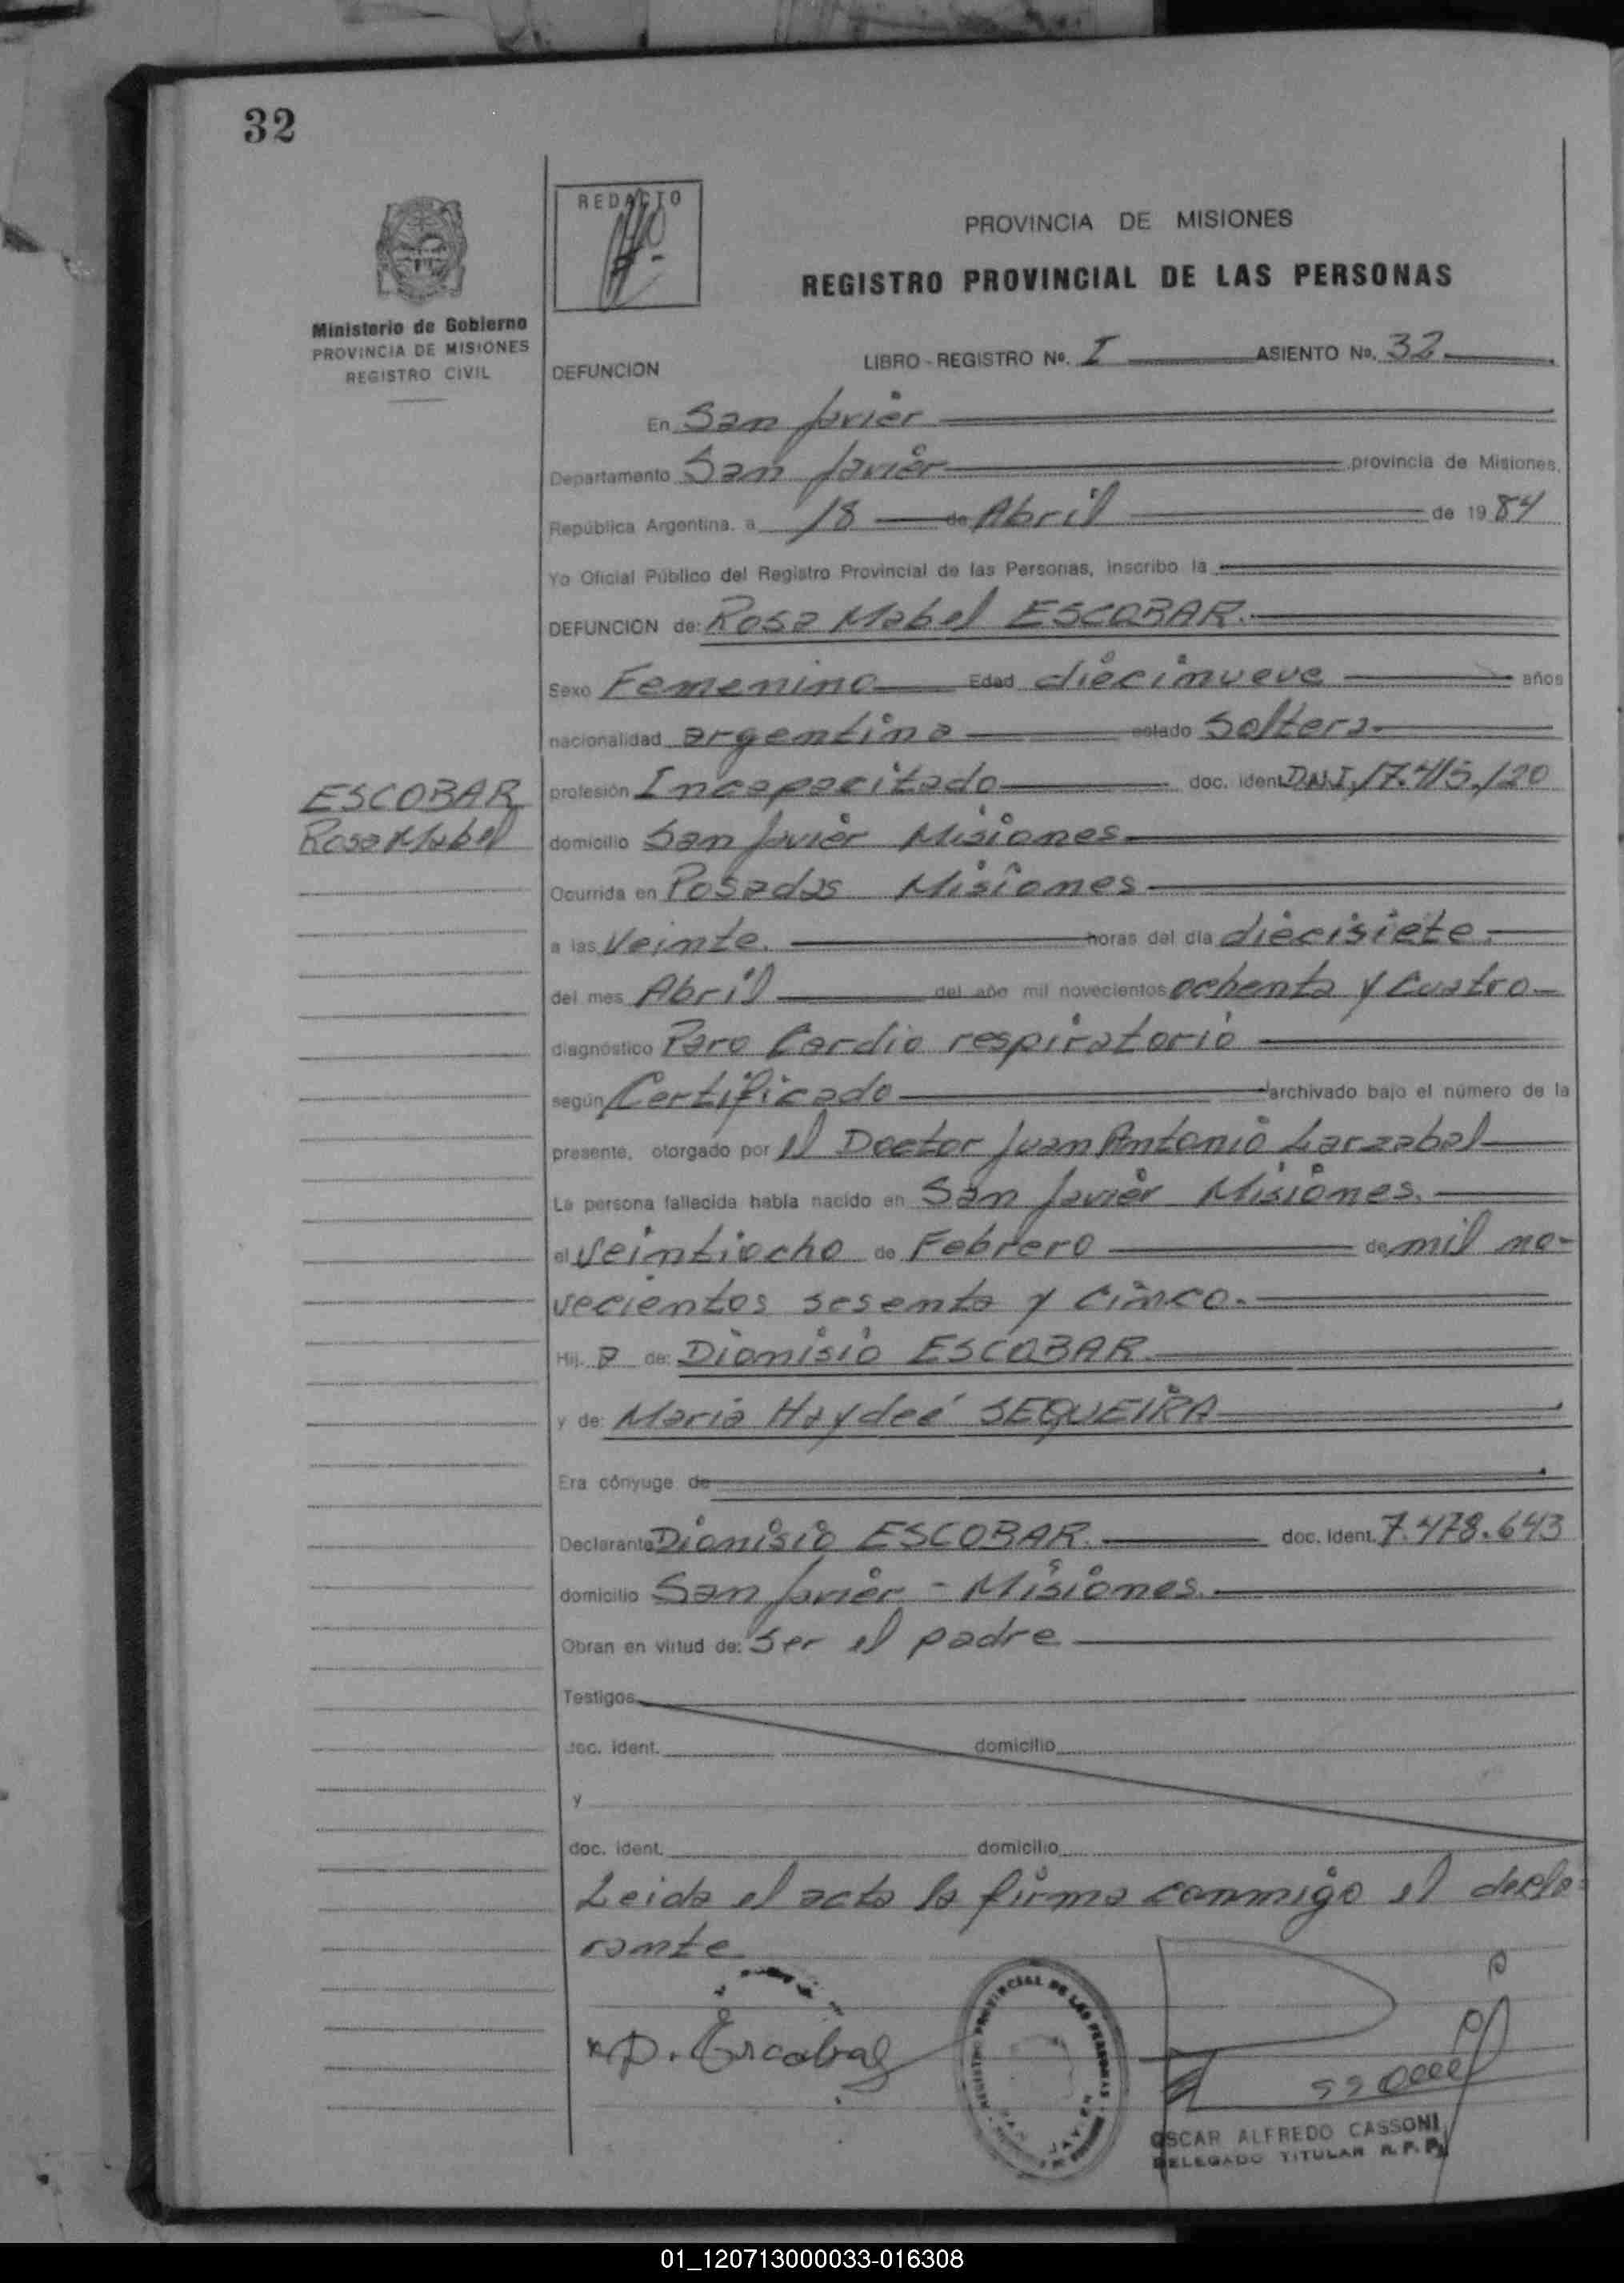 32
REDACTO
PROVINCIA DE MISIONES
REGISTRO PROVINCIAL DE LAS PERSONAS
Ministerio de Gobierno
PROVINCIA DE MISIONES
REGISTRO CIVIL
DEFUNCION LIBRO - REGISTRO No. I ASIENTO No. 32
En San Javier
Departamento San Javier provincia de Misiones,
República Argentina, a 18 de Abril de 1984
Yo Oficial Público del Registro Provincial de las Personas, inscribo la
DEFUNCION de: Rosa Mabel ESCOBAR.
Sexo Femenino Edad diecinueve años
nacionalidad argentina estado Soltera.
ESCOBAR
Rosa Mabel
profesión Incapacitado doc. ident. D.N.I. 17.415.120
domicilio San Javier Misiones
Ocurrida en Posadas Misiones
a las Veinte. horas del día diecisiete.
del mes Abril del año mil novecientos ochenta y cuatro
diagnóstico Paro Cardio respiratorio
según Certificado archivado bajo el número de la
presente, otorgado por el Doctor Juan Antonio Larzabal
La persona fallecida había nacido en San Javier Misiones.
el veintiocho de Febrero de mil no-
vecientos sesenta y cinco.
Hij a de: Dionisio ESCOBAR
y de: Maria Haydeé SEQUEIRA
Era cónyuge de
Declarante Dionisio ESCOBAR. doc. Ident. 7.478.643
domicilio San Javier - Misiones.
Obran en virtud de: Ser el padre
Testigos
doc. ident. domicilio
y
doc. ident. domicilio
Leida el acta la firma conmigo el decla-
rante
D. Escobar
REGISTRO PROVINCIAL DE LAS PERSONAS
OSCAR ALFREDO CASSONI
DELEGADO TITULAR R. P. P.
01_120713000033-016308